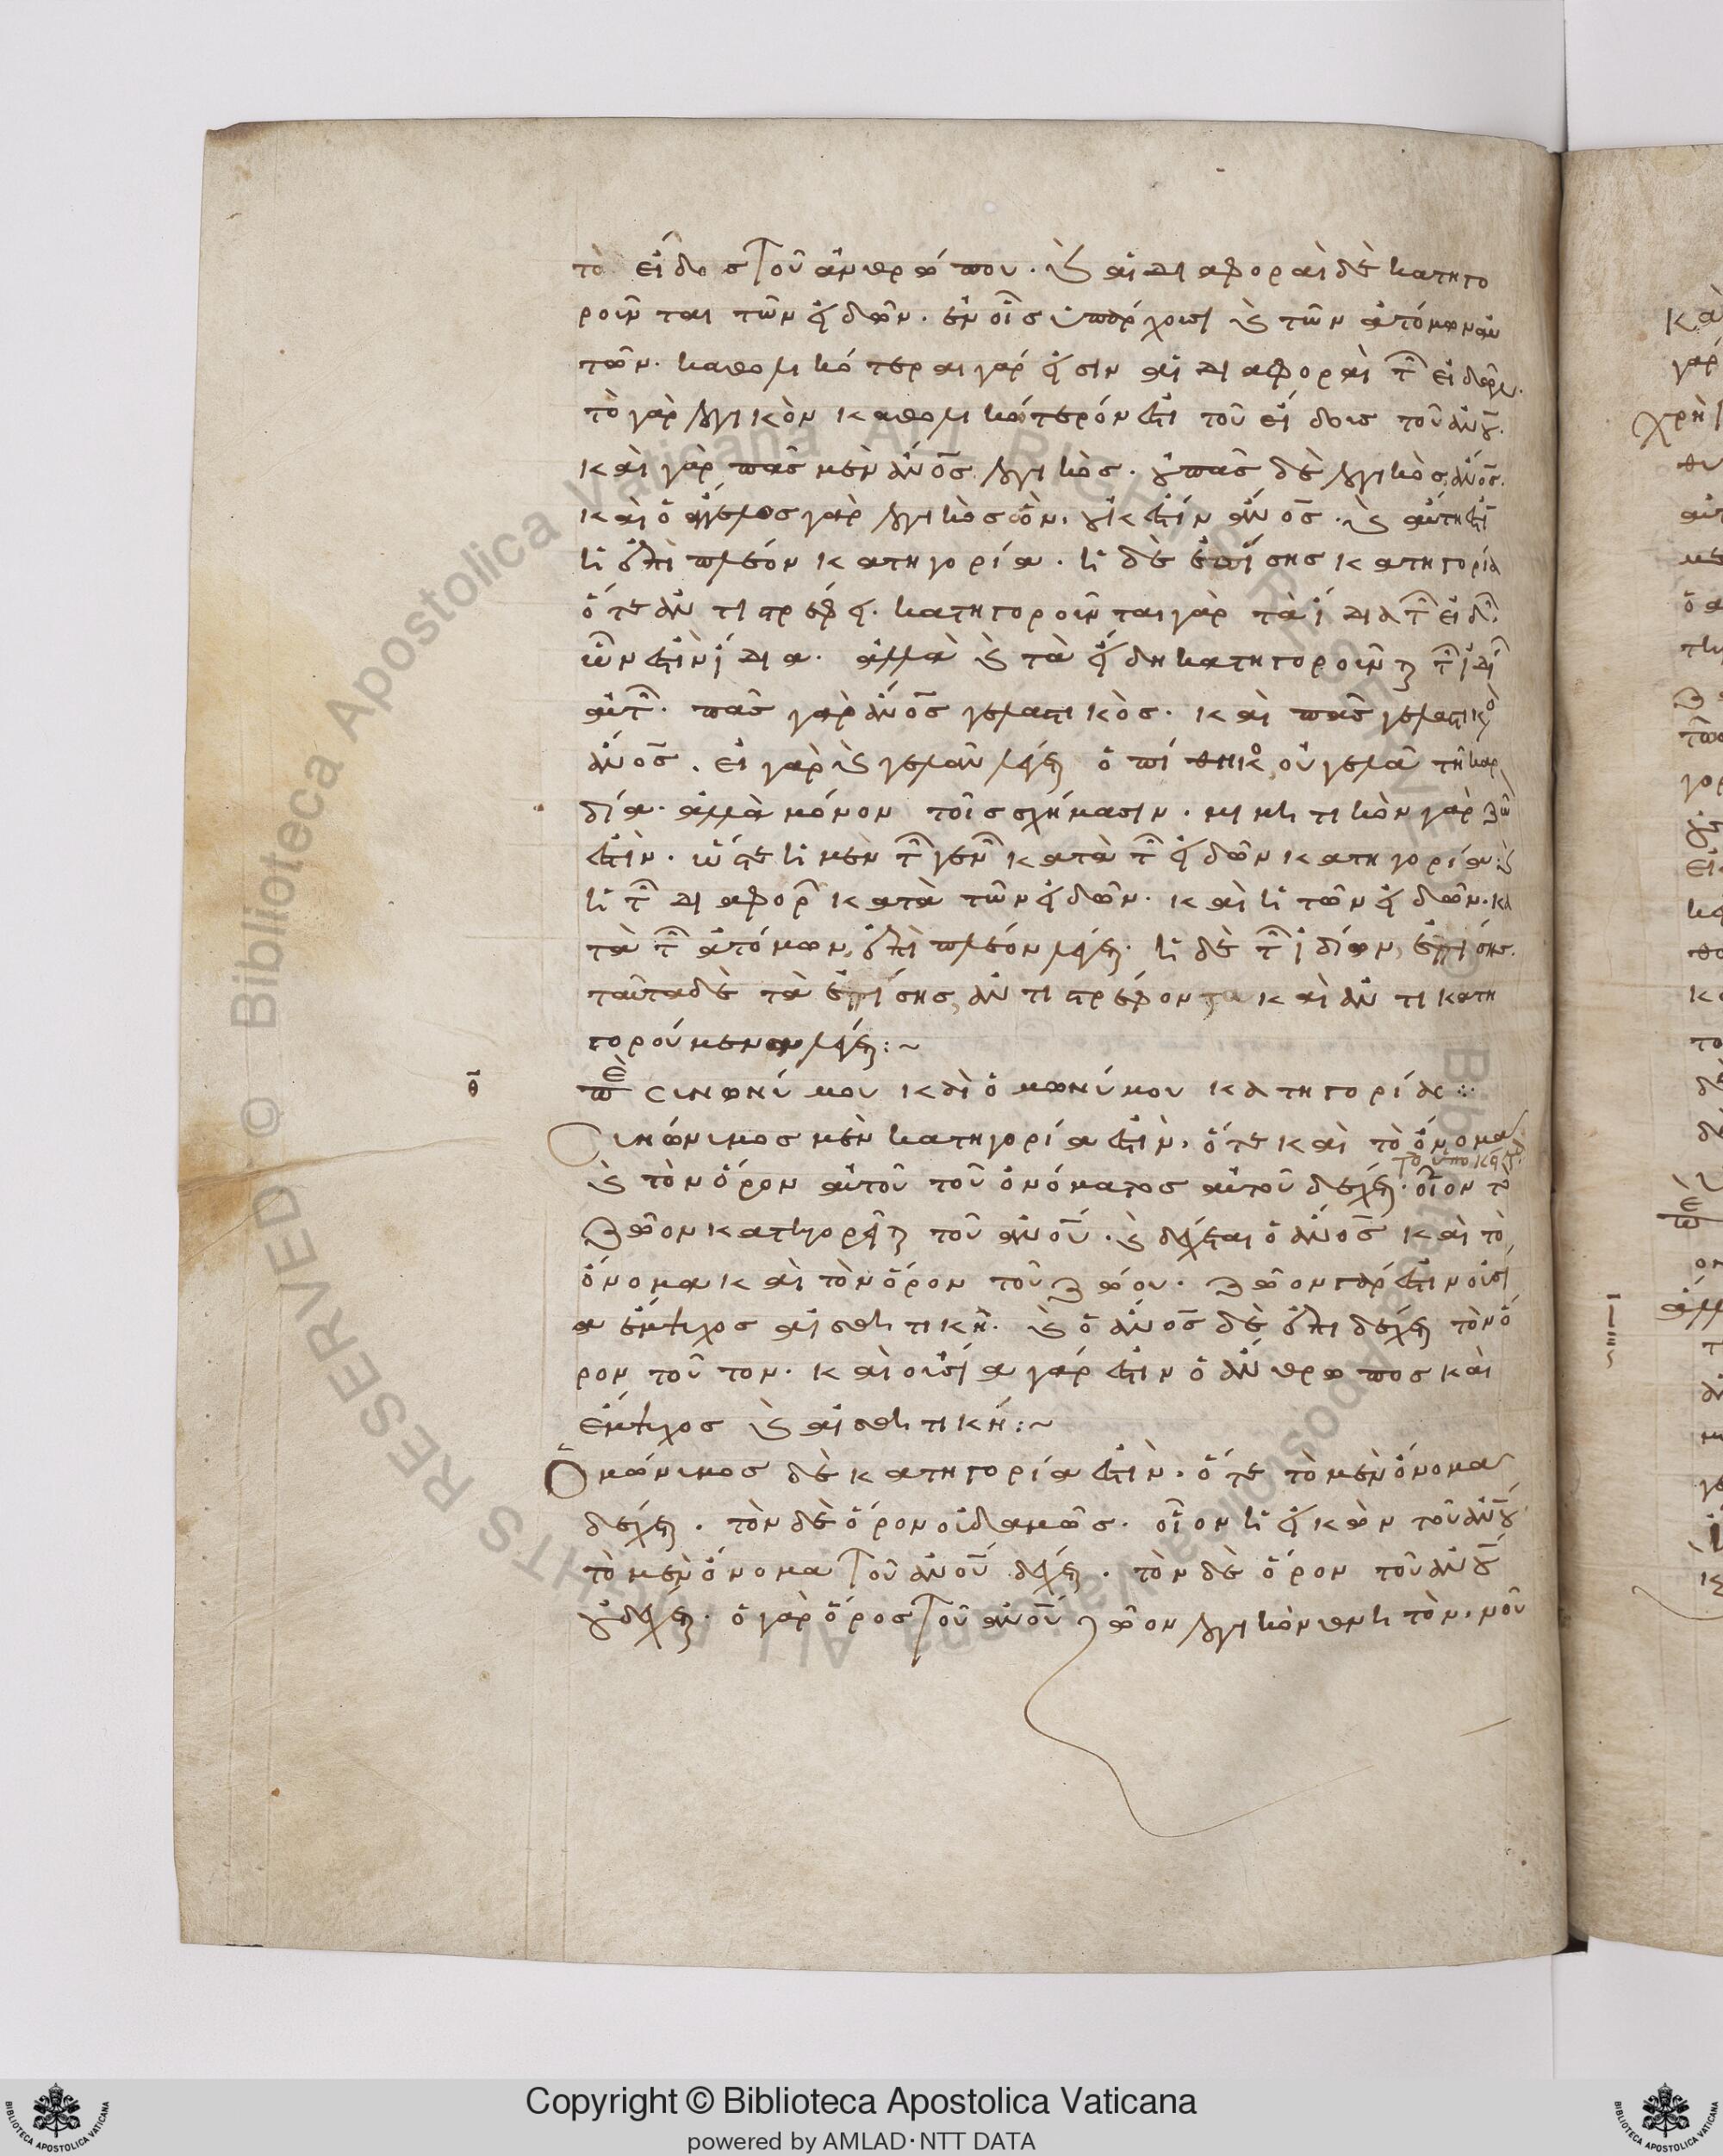 τὸ εἶδος τοῦ ἀνθρώπου. καὶ αἱ διαφοραὶ δὲ κατηγο
ροῦνται τῶν εἰδῶν. ἐν οἷς ὑπάρχουσι καὶ τῶν ἀτόμων αὐ
τῶν. καθολικώτεραι γάρ εἰσιν αἱ διαφοραὶ τῶν εἰδῶν.
τὸ γὰρ λογικὸν καθολικώτερόν ἐστι τοῦ εἴδους τοῦ ἀνου.
καὶ γὰρ πᾶς μὲν ἄνος λογικός. οὐ πᾶς δὲ λογικὸς ἄνος.
καὶ ὁ ἄγγελος γὰρ λογικὸς ὤν, οὐκ ἐστὶν ἄνος. καὶ αὕτη ἐστὶ
ἡ ἐπὶ πλέον κατηγορία. ἡ δὲ ἐπίσης κατηγορία
ὅτε ἀντιστρέφει. κατηγοροῦνται γὰρ τὰ ἴδια τῶν εἰδῶν
ὧν ἐστὶν ἴδια. ἀλλὰ καὶ τὰ εἴδη κατηγοροῦνται τῶν ἰδίων
αὐτῶν. πᾶς γὰρ ἄνος γελαστικός. καὶ πᾶς γελαστικὸ
ἄνος. εἰ γὰρ καὶ γελᾶν λέγεται ὁ πίθηκος, οὐ γελᾶ τῆ καρ
δία. ἀλλὰ μόνον τοῖς σχήμασιν. μιμητικὸν γὰρ ζῶ
ἐστίν. ὥστε ἡ μὲν τῶν γενῶν κατὰ τῶν εἰδῶν κατηγορία. καὶ
ἡ τῶν διαφορῶν κατὰ τῶν εἰδῶν. καὶ ἡ τῶν εἰδῶν. κα
τὰ τῶν ἀτόμων, ἐπὶ πλέον λέγεται. ἡ δὲ τῶν ἰδίων, ἐπίσης.
ταῦτα δὲ τὰ ἐπίσης, ἀντιστρέφοντα καὶ ἀντικατη
γορούμενον λέγεται:~
θ περὶ συνωνύμου καὶ ὁμωνύμου κατηγορίας:
Συνώνυμος μὲν κατηγορία ἐστὶν, ὅτε καὶ τὸ ὄνομα
τὸ ὑποκείμενον
καὶ τὸν ὅρον αὐτοῦ τοῦ ὀνόματος αὐτοῦ δέχεται. οἷον τὸ
ζῶον κατηγορεῖται τοῦ ἀνου. καὶ δέχεται ὁ ἄνος καὶ τὸ
ὄνομα καὶ τὸν ὅρον τοῦ ζώου. ζῶον γάρ ἐστιν οὐσί
α ἔμψυχος αἰσθητική. καὶ ὁ ἄνος δὲ ἐπιδέχεται τὸν ὅ
ρον τοῦτον. καὶ οὐσία γάρ ἐστιν ὁ ἄνθρωπος καὶ
ἔμψυχος καὶ αἰσθητική:~
Ὁμώνυμος δὲ κατηγορία ἐστίν. ὅτε τὸ μὲν ὄνομα
δέχεται. τὸν δὲ ὅρον οὐδαμῶς. οἷον ἡ εἰκὼν τοῦ ἀνου
τὸ μὲν ὄνομα τοῦ ἀνου δέχεται. τὸν δὲ ὅρον τοῦ ἀνου
οὐ δέχεται. ὁ γὰρ ὅρος τοῦ ἀνου ζῶον λογικὸν θνητὸν, νοῦ